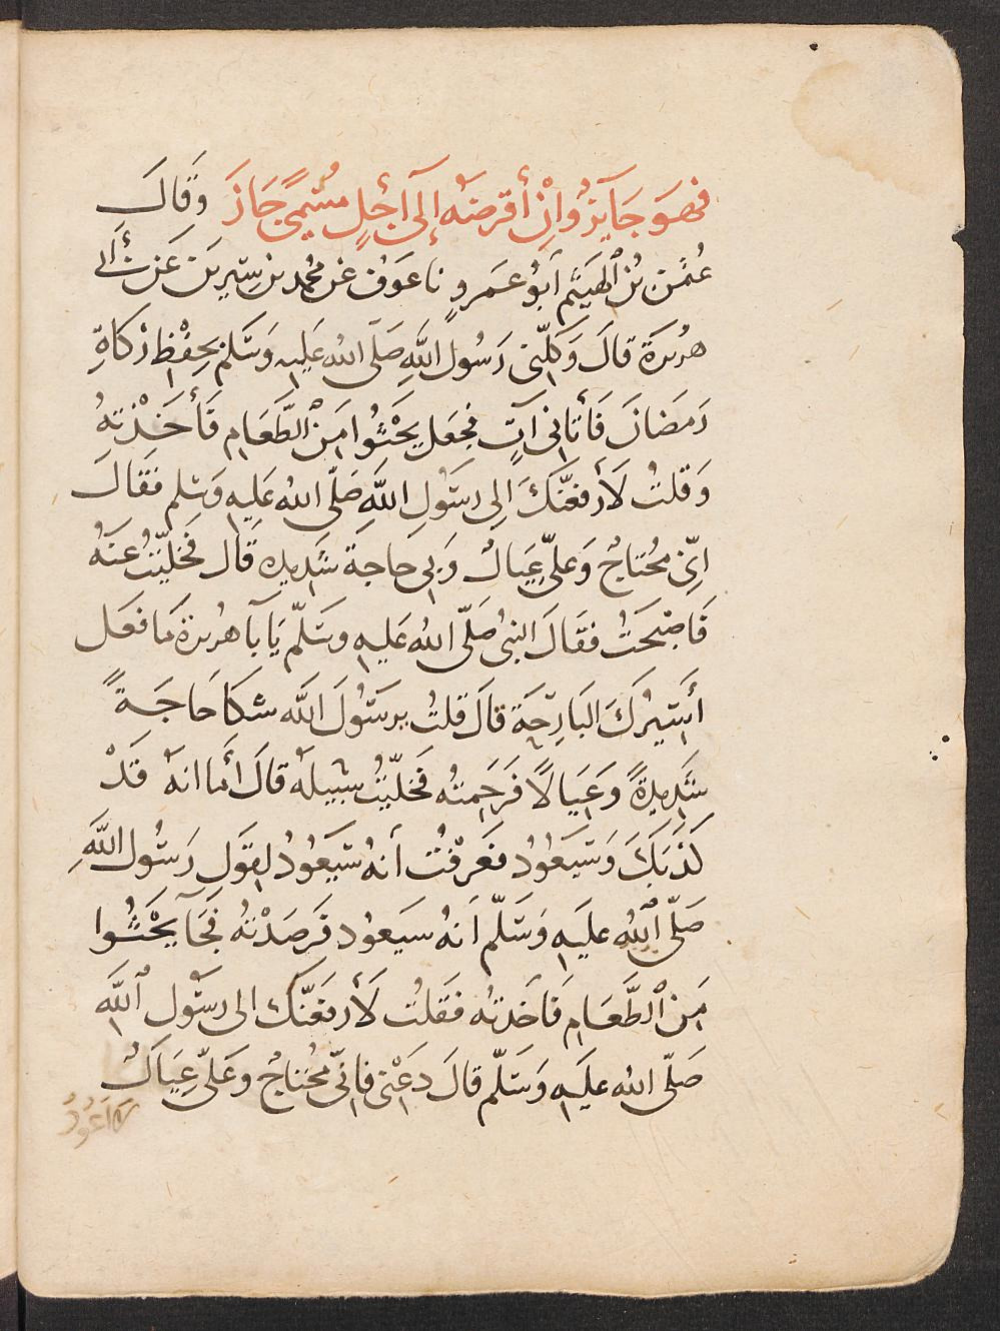 فهوَ جَآيزٌ وَاِنْ أقرضَهُ إلَى اَجَلٍ مُسَمًّى جَازَ وَقَالَ
عُثمٰن بْنُ الهَيثَمِ اَبُو عَمَروٍ نا عَوفٌ عَن مُحمد بنِ سِيرِينَ عَن أَبى
هريرَةَ قالَ وَكَّلَنِى رَسُولُ اللَّهِ صَلَّى اللهُ عَلَيهِ وَسَلم بحِفْظِ زَكَاةِ
رَمَضَانَ فَأتانِى آتٍ فجَعَل يَحْثُوا مِنَ الطَّعَامِ فَأَخَذْتهُ
وَقلتُ لَأرفعَنَّكَ اِلى رسَوُلِ اللَّهِ صَلَّى اللهُ عَليهِ وَسَلم فقَالَ
اِنِّى مُحْتاجٌ وَعلىَّ عِيَالٌ وَبى حاجةٌ شَدِيدة قَالَ فخَلَّيتُ عَنهُ
فَاصْبَحتُ فقَالَ النبىُّ صَلَّى اللهُ عَليهِ وسَلَّم يَآ اَبا هُريرَةَ مَا فعَل
أَسِيرُكَ البَارِحَةَ قالَ قلتُ يرسَوُلَ اللَّه شكَا حَاجَةً
شَدِيدةً وَعِيَالًا فَرحِمتُه فخَلَّيتُ سَبيلَهُ قالَ أَمَا انهُ قَدْ
كَذَبَكَ وَسَيَعُودُ فعَرَفْتُ اَنهُ سَيَعُودُ لِقَولِ رَسَوُل اللَّهِ
صَلَّى اللهُ عليَهِ وَسَلَّم اَنهُ سَيَعُود فَرصَدْتهُ فجَآ يَحْثُوا
مِنَ الطَّعَامِ فَاَخَذتهُ فقَلتُ لَأرفعَنَّكَ الى رسَوُلِ اللَّه
صَلّى الله عليَهِ وَسَلَّم قالَ دَعْنِى فاِنّى مُحْتاجٌ وعَلىَّ عِيَالٌ
لَا اَعُودُ